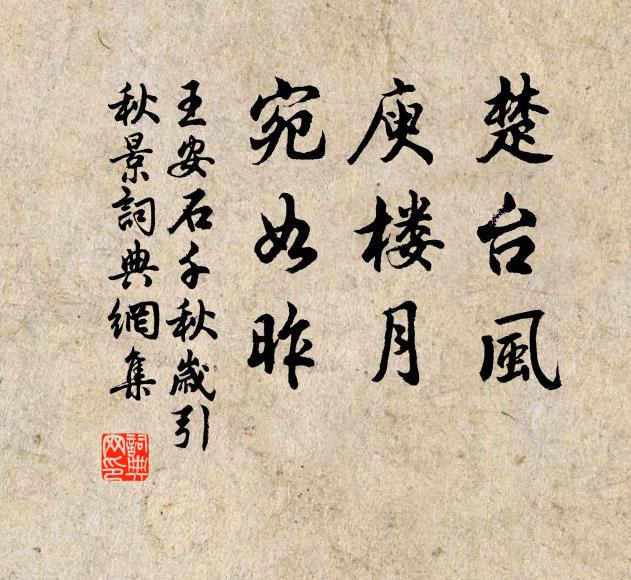 楚台風
庾楼月
宛如昨
王安石千秋歲引
秋景詞典網集
詞典
网印